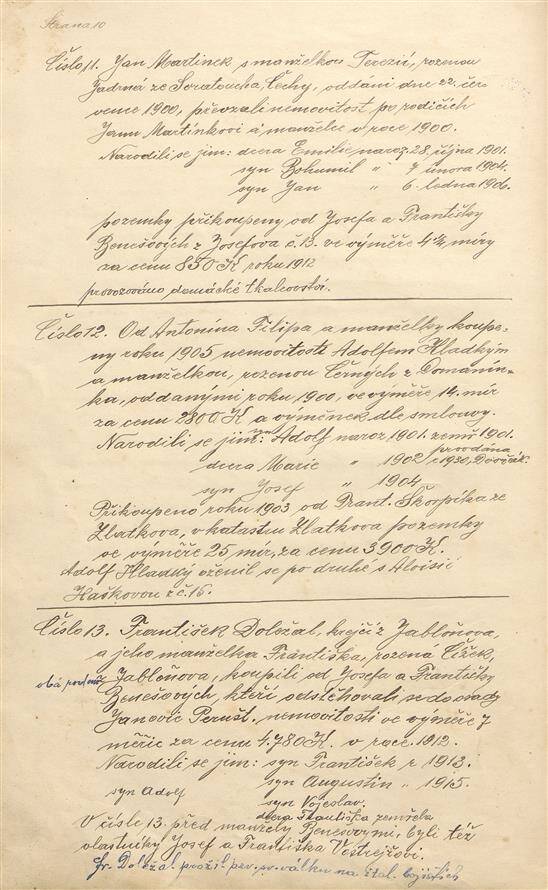 Strana 10
Číslo 11. Jan Martinek s manželkou Terezií, rozenou
Jadrná ze Svratoucha, Čechy, oddáni dne 22. čer
vence 1900, převzali nemovitost po rodičích
Janu Martinkovi a manželce v roce 1900.
Narodili se jim: dcera Emilie naroz. 28. října 1901.
syn Bohumil " 7 února 1904.
syn Jan " 6. ledna 1906.
pozemky přikoupeny od Josefa a Františky
Benešových z Josefova č. 13. ve výměře 4¼ míry
za cenu 850 K roku 1912
provozováno domácké tkalcovství.
Číslo 12. Od Antonína Filipa a manželky koupe-
ny roku 1905 nemovitosti Adolfem Hladkým
a manželkou, rozenou Černých z Domanín-
ka, oddanými roku 1900, ve výměře 14. mír
za cenu 2800 K a výměnek dle smlouvy.
Narodili se jim: syn Adolf naroz. 1901. zemř 1901.
dcera Marie " 1902 provdána r 1930, Dvořák.
syn Josef " 1904
Přikoupeno roku 1903 od Frant. Škorpíka ze
Zlatkova, v katastru Zlatkova pozemky
ve výměře 25 mir, za cenu 3900 K.
Adolf Hladký oženil se po druhé s Aloisií
Haškovou z č. 16.
Číslo 13. František Doležal, krejčí z Jabloňova,
a jeho manželka Františka, rozená Čížek,
obá z Jabloňova, koupili od Josefa a Františky
Benešových, kteří odstěhovali se do osady
Janovic Pernšt., nemovitosti ve výměře 7
měřic za cenu 4.780 K. v roce 1912.
Narodili se jim: syn František r 1913.
syn Adolf syn Augustin " 1915.
syn Vojeslav.
dcera Františka zemřela
V čísle 13. před manžely Benešovými, byli též
vlastníky Josef a Františka
Fr. Doležal prožil prv. sv. válku na ital. bojištích